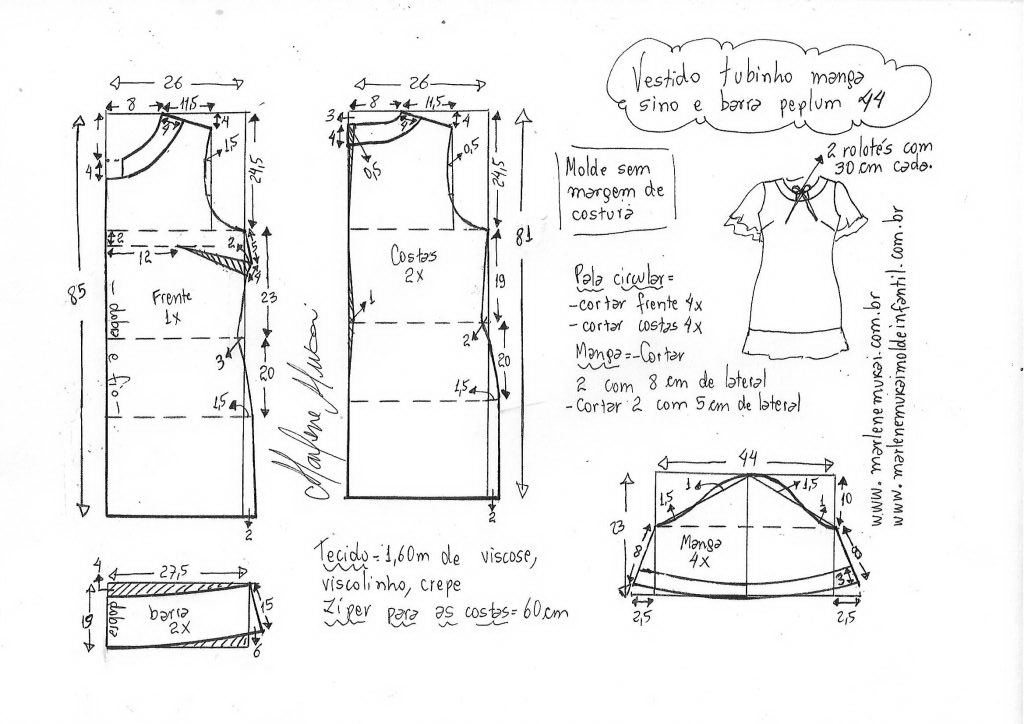 Vestido tubinho manga
sino e barra peplum 44
2 rolotês com
30 cm cada.
Molde sem
margem de
costura
Pala circular=
-cortar frente 4x
-cortar costas 4x
Manga=-Cortar
2 com 8 cm de lateral
-Cortar 2 com 5 cm de lateral
www.marlenemukai.com.br
www.marlenemukaimoldeinfantil.com.br
26
8
11,5
4
4
4
1,5
24,5
85
2
12
2
5
4
Frente
1x
-dobra e fio-
23
3
20
1,5
2
Marlene Mukai
26
8
11,5
3
4
4
4
0,5
0,5
24,5
81
Costas
2x
19
1
2
20
1,5
2
Tecido=1,60m de viscose,
viscolinho, crepe
Zíper para as costas=60cm
27,5
4
19
dobra
barra
2x
15
6
44
1
1,5
1,5
1
10
23
Manga
4x
8
8
3
2,5
2,5